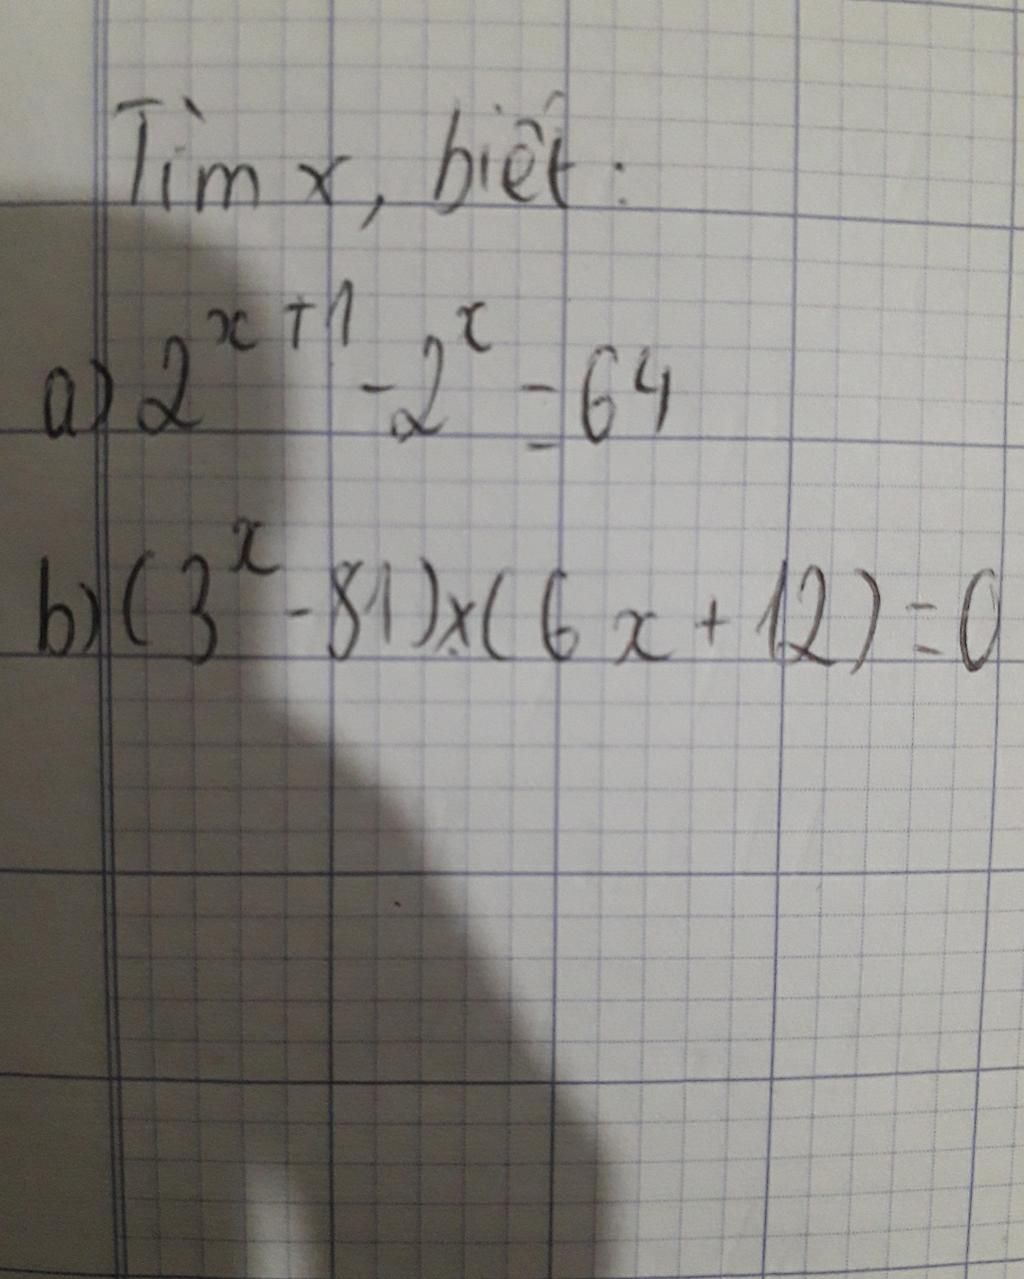 Tìm x, biết:
a) 2^{x+1} - 2^x = 64
b) (3^x - 81) × (6x + 12) = 0